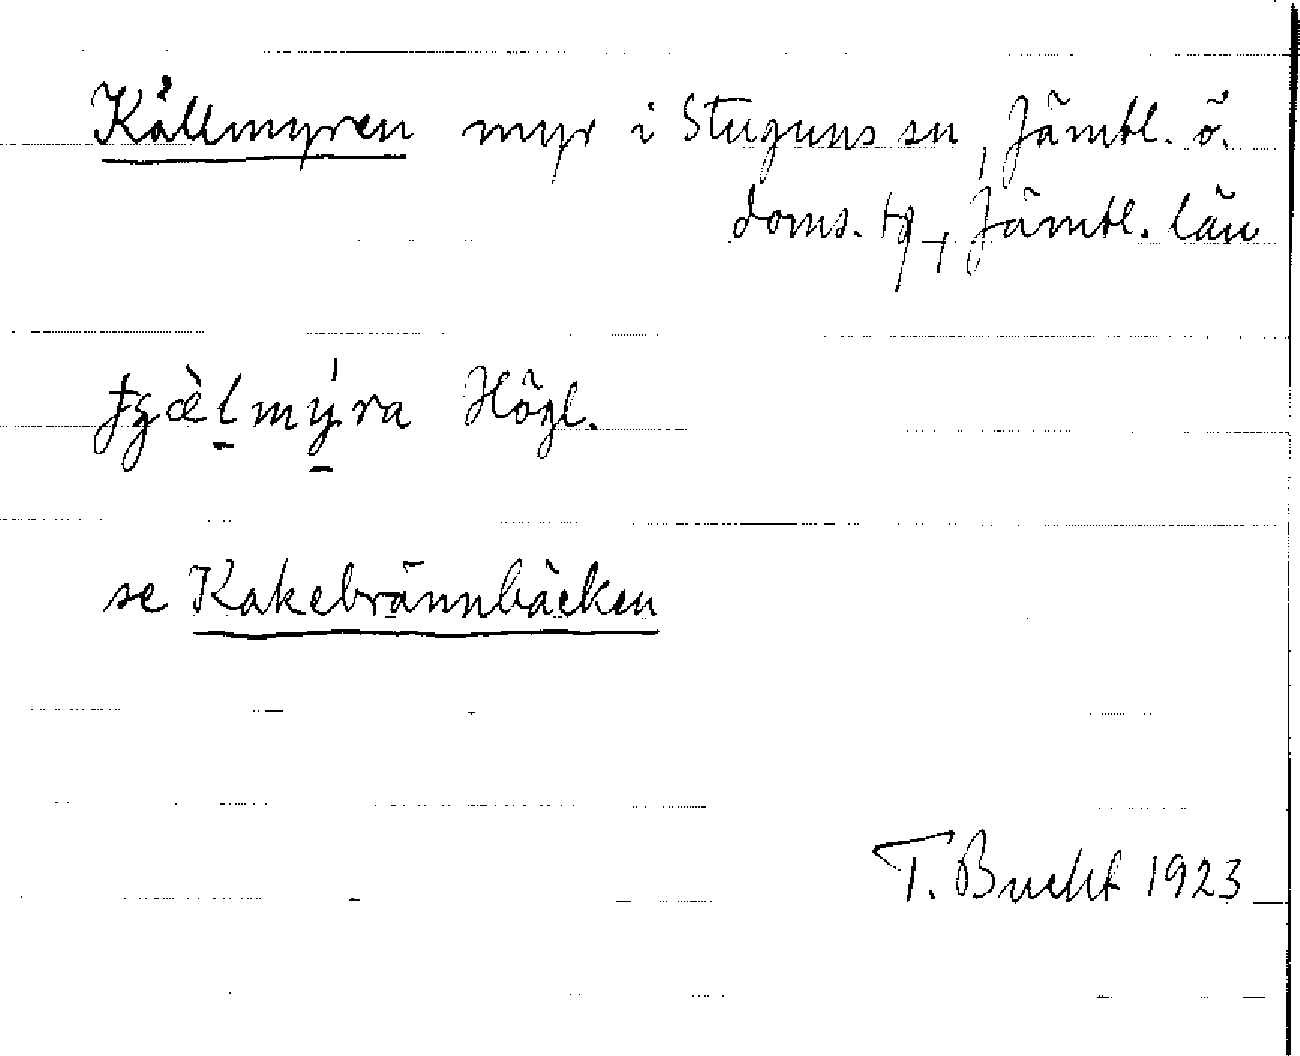 Källmyren myr i Stuguns sn, Jämtl. ö.
doms. tg, Jämtl. län
Högl.
se Kakebrännbäcken
T. Bucht 1923